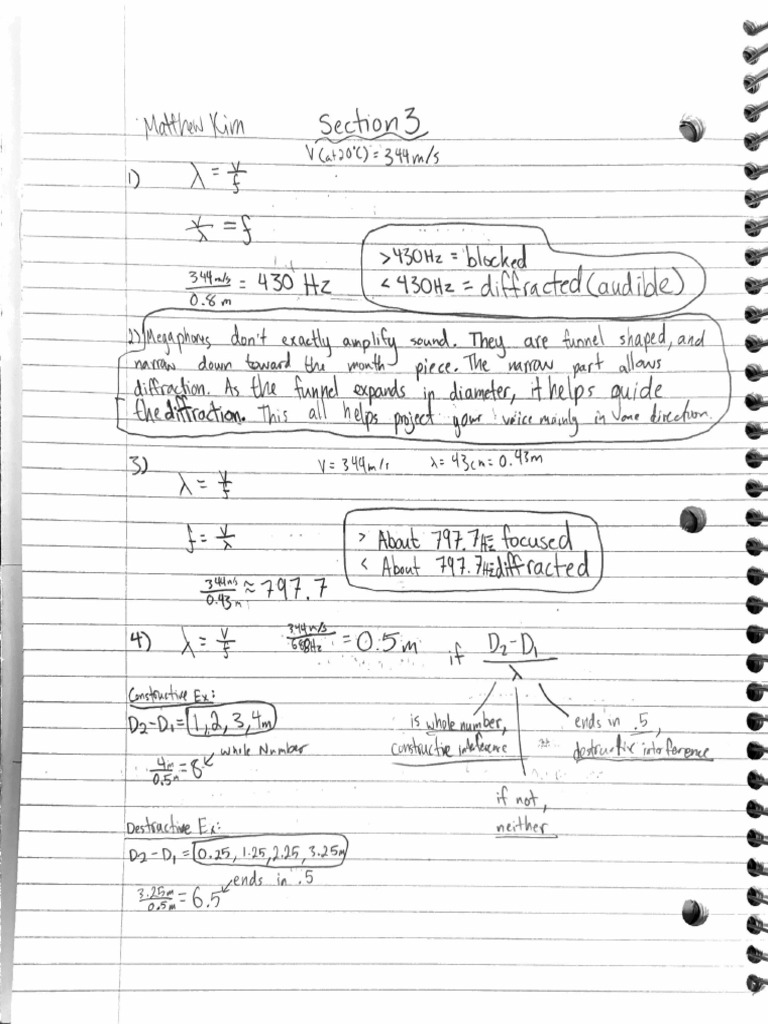 Matthew Kim Section 3
V(at 20°C) = 344 m/s
1) λ = v/f
v/λ = f
344 m/s / 0.8 m = 430 Hz
> 430Hz = blocked
< 430Hz = diffracted (audible)
2) Megaphones don't exactly amplify sound. They are funnel shaped, and
narrow down toward the mouth piece. The narrow part allows
diffraction. As the funnel expands in diameter, it helps guide
the diffraction. This all helps project your voice mainly in one direction.
3) λ = v/f V = 344 m/s λ = 43cm = 0.43m
f = v/λ
344 m/s / 0.43 m ≈ 797.7
> About 797.7Hz focused
< About 797.7Hz diffracted
4) λ = v/f 344 m/s / 688Hz = 0.5m if D2-D1 / λ
is whole number,
constructive inteference
ends in .5,
destructive interference
if not,
neither
Constructive Ex:
D2-D1 = 1, 2, 3, 4m
4m / 0.5m = 8 whole Number
Destructive Ex:
D2-D1 = 0.25, 1.25, 2.25, 3.25m
3.25m / 0.5m = 6.5 ends in .5